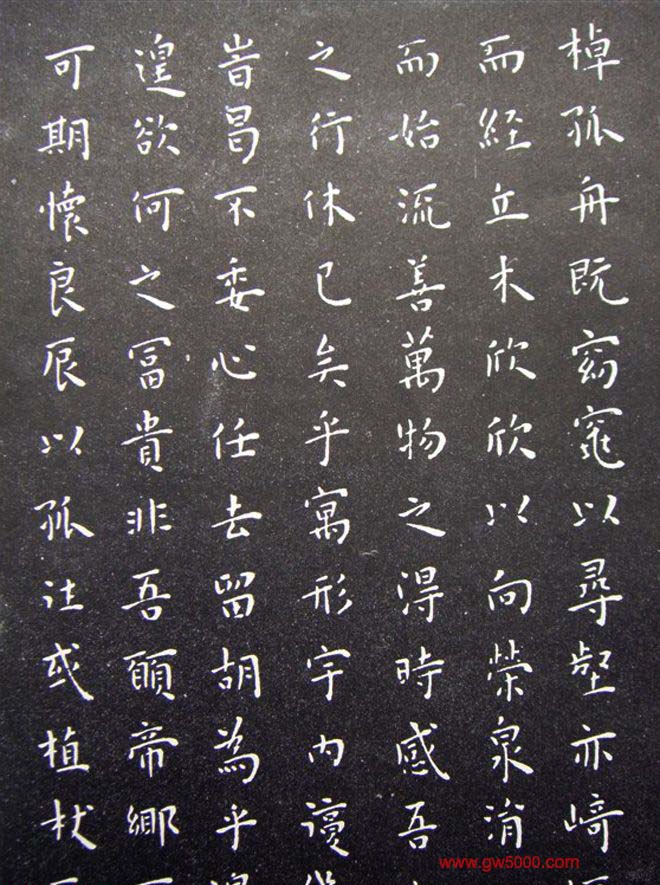 棹孤舟既窈窕以尋壑亦崎
而経丘木欣欣以向榮泉涓
而始流善萬物之得時感吾
之行休已矣乎寓形宇内復
旹曷不委心任去留胡為乎
遑欲何之冨貴非吾願帝鄉
可期懷良辰以孤往或植杖
www.gw5000.com